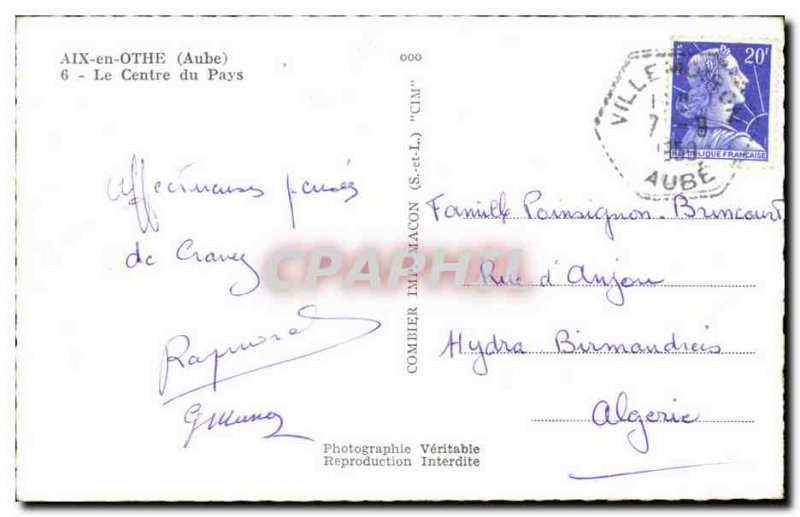 AIX-en-OTHE (Aube)
6 - Le Centre du Pays
ooo
20F
REPUBLIQUE FRANÇAISE
7 - 9
AUBE
Affectueuses pensées
de
Raymond
COMBIER IMP. MACON (S.-et-L.) "CIM"
CPARAMA
Famille Poinsignon-Brincourt
Rue d'Anjou
Hydra Birmandreis
Algerie
Photographie Véritable
Reproduction Interdite